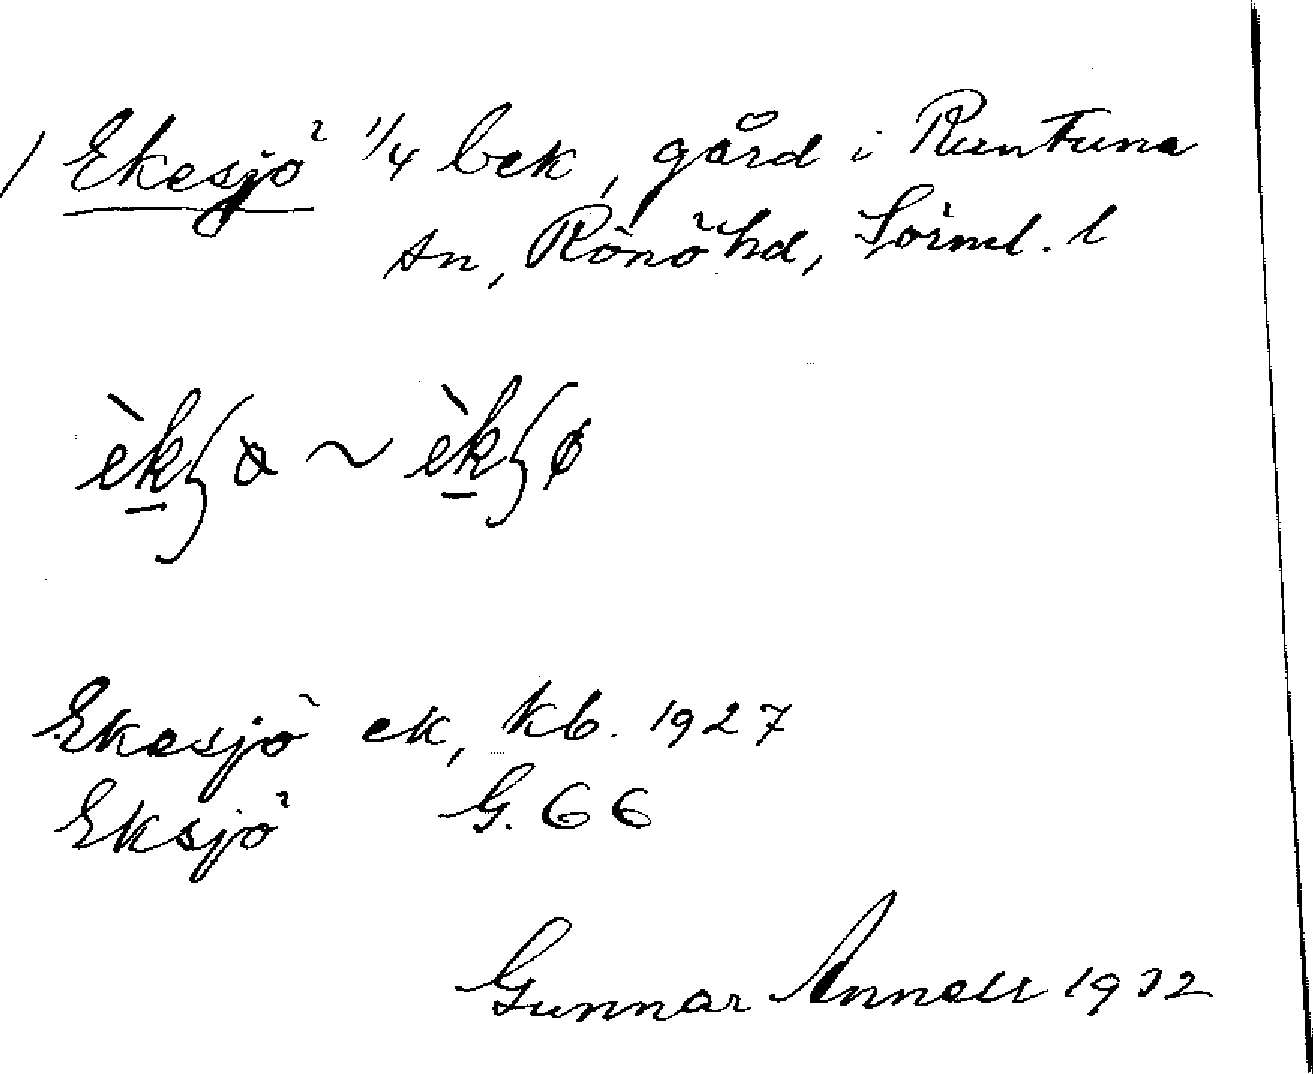 / Ekesjö 1/4 bek, gård i Runtuna
sn, Rönö hd, Sörml. l
Ekesjö ek, kb. 1927
Eksjö G. 66
Gunnar Annell 1932